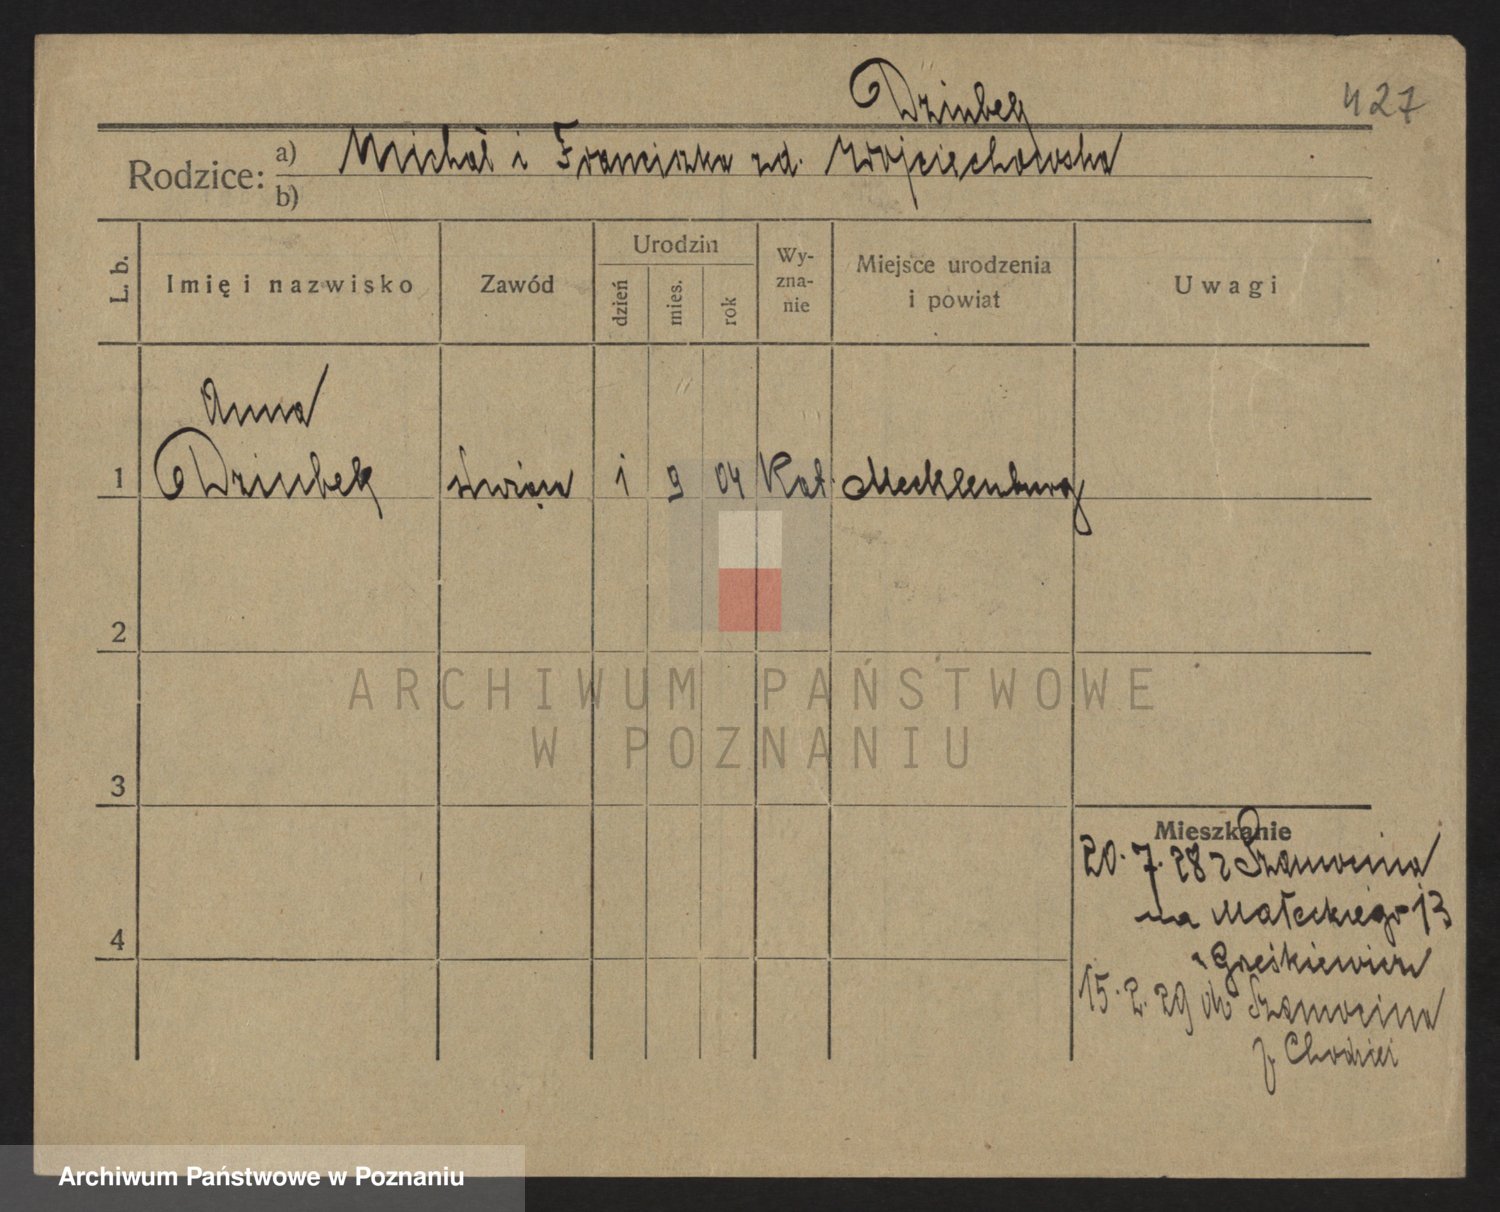 Dziubek
427
Rodzice: a) Michał i Franciszka zd. Wojciechowska
b)
L. b.
Imię i nazwisko
Zawód
Urodzin
dzień
mies.
rok
Wy-
zna-
nie
Miejsce urodzenia
i powiat
Uwagi
Anna
1 Dziubek służąca 1 9 04 Kat. Mecklenburg
2
3
4
ARCHIWUM PAŃSTWOWE
W POZNANIU
Mieszkanie
20.7.28 z Szamocina
na Małeckiego 13
Greśkiewicz
15.2.29 do Szamocina
p. Chodzież
Archiwum Państwowe w Poznaniu